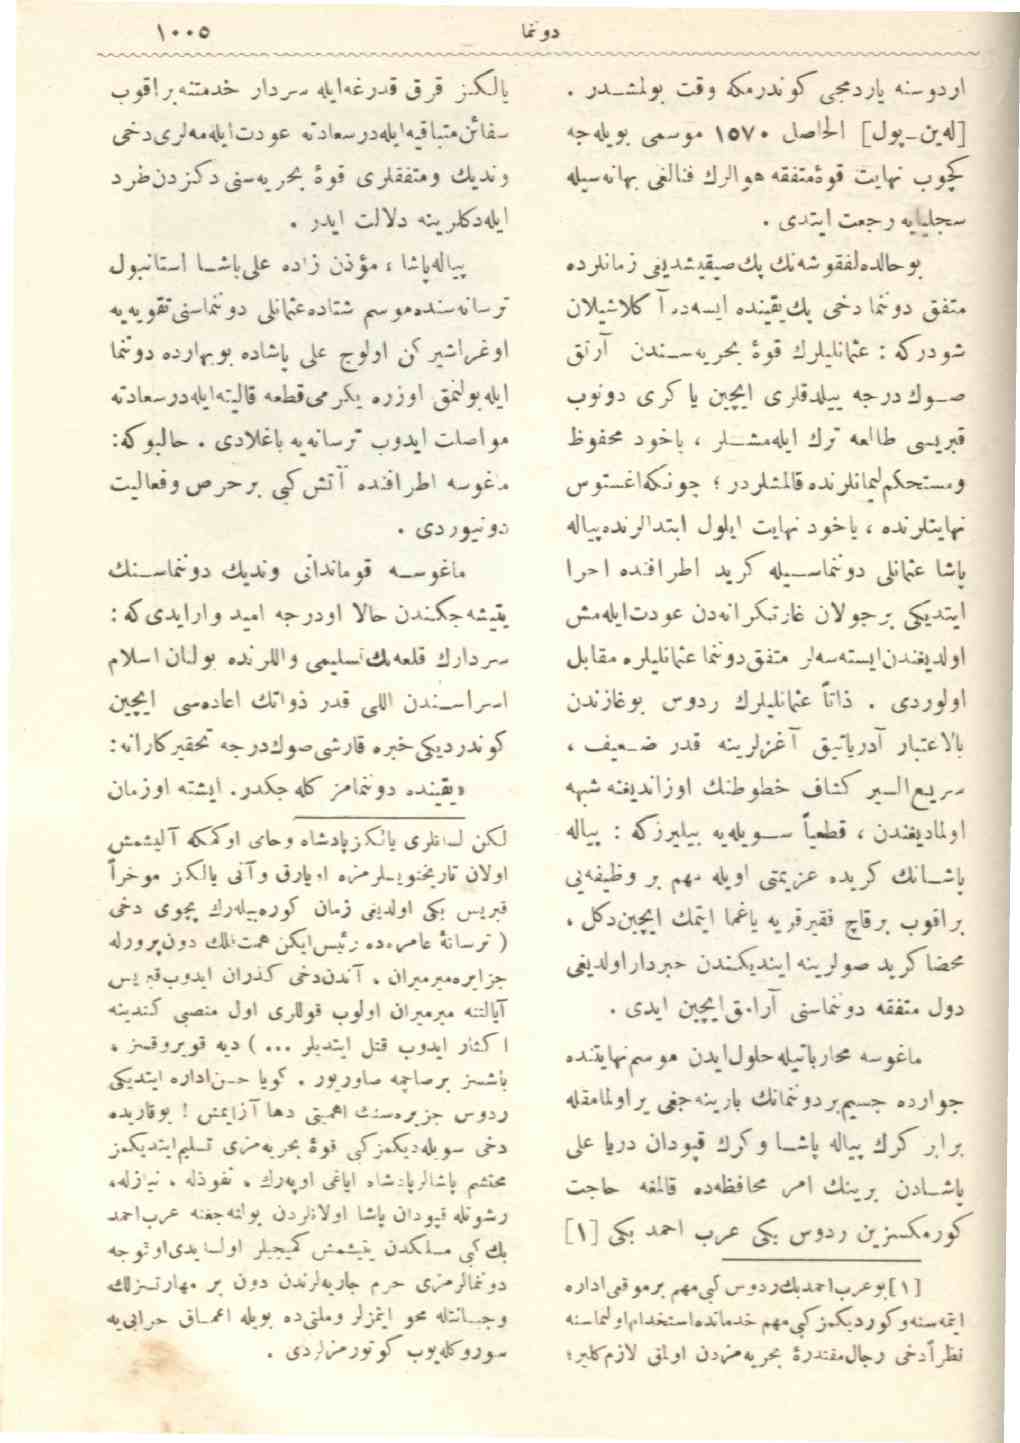 دوننما
١٠٠٥
اردوسنه یاردمجی كوندرمكه وقت بولمشـدر .
[لەین_پول] الحاصل ١٥٧٠ موسمی بویله‌جه
كچوب نهایت قوۀ متفقه هوالرك فنالغی بهانه‌سیله
سجلیایه رجعت ایتدی .
بوحالده لفقوشه‌نك پك صیقیشدیغی زمانلرده
متفق دوننما دخی پك یقینده ایسه‌ده آكلاشیلان
شودركه : عثمانلیلرك قوۀ بحریه‌سـندن آرتق
صـوك درجه ییلدقلری ایچین یا كری دونوب
قبریسی طالعه ترك ایله‌مشـلر ، یاخود محفوظ
ومستحكم لیمانلرنده قالمشلردر ؛ چونكه اغستوس
نهایتلرنده ، یاخود نهایت ایلول ابتدالرنده پیاله
پاشا عثمانلی دوننماسـیله كرید اطرافنده اجرا
ایتدیكی برجولان غارتكرانه‌دن عودت ایله‌مش
اولدیغندن ایسته‌سه‌لر متفق دوننما عثمانلیلره مقابل
اولوردی . ذاتاً عثمانلیلرك ردوس بوغازندن
بالاعتبار آدریاتیق آغزلرینه قدر ضـعیف ،
سریع السیر كشاف خطوطنك اوزاندیغنه شبهه
اولمادیغندن ، قطعیاً سـویله‌یه بیلیرزكه : پیاله
پاشـانك كریده عزیمتی اویله مهم بر وظیفه‌یی
براقوب برقاچ فقیر قریه یاغما ایتمك ایچین دكل ،
محضا كرید صولرینه ایندیكندن خبردار اولدیغی
دول متفقه دوننماسنی آرامق ایچین ایدی .
ماغوسه محارباتیله حلول ایدن موسم نهایتنده
جوارده جسیم بر دوننمانك بارینه‌جغی یر اولمامقله
برابر كرك پیاله پاشـا وكرك قپودان دریا علی
پاشـادن برینك امر محافظه‌ده قالمغه حاجت
كورمكسزین ردوس بكی عرب احمد بكی [١]
[١] بو عرب احمد بك ردوس كبی مهم بر موقعی اداره
ایتمه‌سنه وكوردیكمز كبی مهم خدماتده استخدام اولنماسنه
نظراً دخی رجال مقتدرۀ بحریه‌مزدن اولمق لازم كلیر؛
یالكـز قرق قدرغه ایله سردار خدمتنه براقوب
سفائن متباقیه ایله درسعادته عودت ایله‌مه‌لری دخی
وندیك ومتفقلری قوۀ بحریه‌سنی دكزدن طرد
ایله‌دكلرینه دلالت ایدر .
پیاله پاشا ، مؤذن زاده علی باشـا استانبول
ترسانه‌سنده موسم شتاده عثمانلی دوننماسنی تقویه‌یه
اوغراشیركن اولوج علی پاشاده بوبهارده دوننما
ایله بولنمق اوزره یكرمی قطعه قالیته ایله درسعادته
مواصلت ایدوب ترسانه‌یه باغلادی . حالبوكه:
ماغوسه اطرافنده آتش كبی برحرص وفعالیت
دونیوردی .
ماغوسـه قوماندانی وندیك دوننماسـنك
یتیشه‌جكندن حالا اودرجه امید وارایدی كه :
سردارك قلعه‌نك تسلیمی واللرنده بولنان اسلام
اسراسـندن اللی قدر ذواتك اعاده‌سی ایچین
كوندردیكی خبره قارشی صوك درجه تحقیركارانه:
«یقینده دوننمامز كله‌جكدر. ایشته اوزمان
لكن لسانلری یالكز پادشاه وحامی اوكمكه آلیشمش
اولان تاریخنویسلرمزه اویارق وآنی یالكز موخراً
قبریس بكی اولدیغی زمان كوره‌بیله‌رك پچوی دخی
( ترسانۀ عامره‌ده رئیس ایكن همت فلك دون‌پرورله
جزایره میرمیران ، آندن دخی كذران ایدوب قبریس
آیالتنه میرمیران اولوب قوللری اول منصبی كندینه
اكثار ایدوب قتل ایتدیلر ... ) دیه قویروقسز ،
باشسز برصاچمه صاوریور . كویا حسن اداره ایتدیكی
ردوس جزیره‌سنك اهمیتی دها آزایمش ! یوقاریده
دخی سویله‌دیكمز كبی قوۀ بحریه‌مزی تسلیم ایتدیكمز
محتشم پاشالر پادشاه ایاغی اوپه‌رك ، نفوذله ، نیازله،
رشوتله قپودان پاشا اولانلردن بولنه‌جغنه عرب احمد
بك كبی مسلكدن یتیشمش كمیجیلر اولسایدی اوقوجه
دوننمالرمزی حرم جاریه‌لرندن دون بر مهارتسزلك
وجبانتله محو ایتمزلر وملتی ده بویله اعماق خرابی‌یه
سوروكله‌یوب كوتورمزلردی .